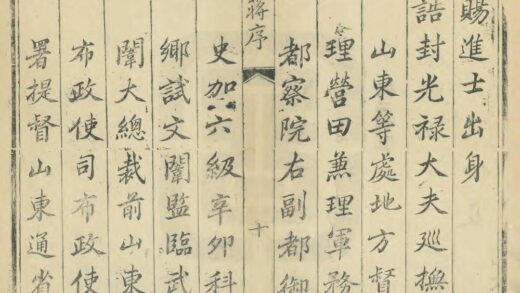 賜進士出身
誥封光祿大夫巡撫
山東等處地方督
理營田兼理軍務
都察院右副都御
蔣序
十
史加六級辛卯科
鄉試文闈監臨武
闈大總裁前山東
布政使司布政使
署提督山東通省